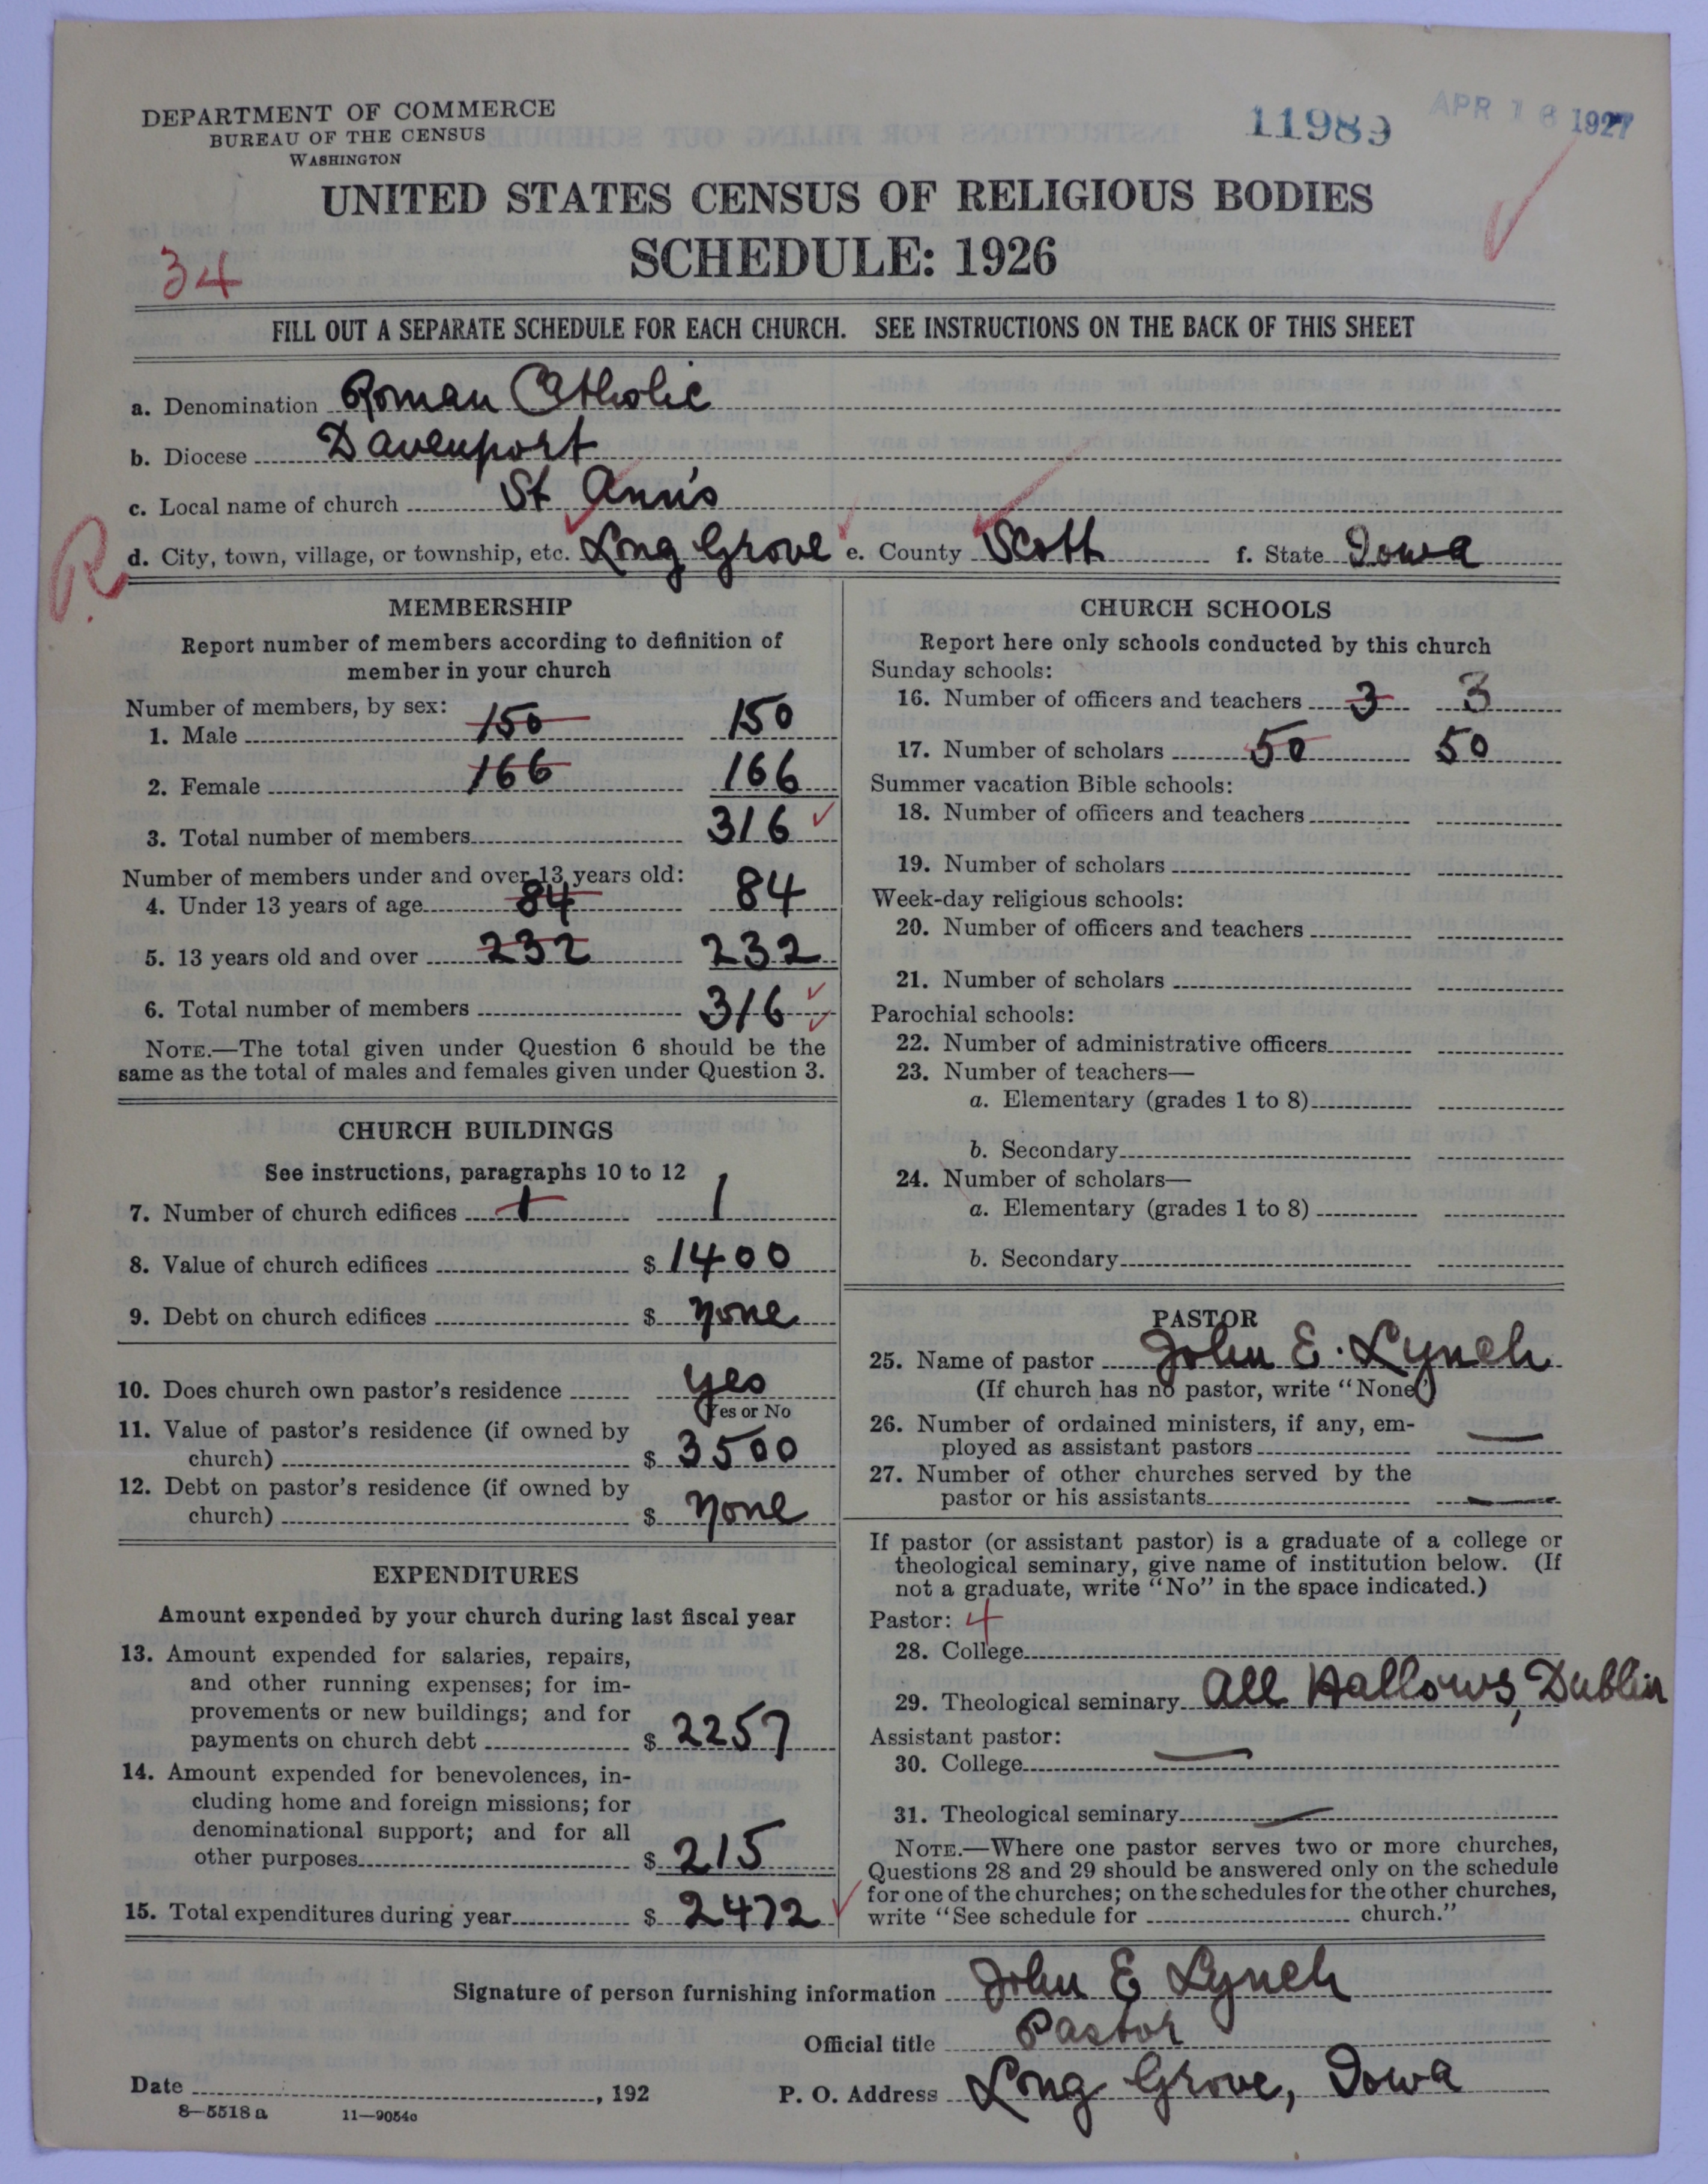 DEPARTMENT OF COMMERCE
BUREAU OF THE CENSUS
WASHINGTON
11989
APR 18 1927
UNITED STATES CENSUS OF RELIGIOUS BODIES
SCHEDULE: 1926
34
FILL OUT A SEPARATE SCHEDULE FOR EACH CHURCH. SEE INSTRUCTIONS ON THE BACK OF THIS SHEET
a. Denomination Roman Catholic
b. Diocese Davenport
c. Local name of church St Ann's
R.
d. City, town, village, or township, etc. Long Grove e. County Scott f. State Iowa
MEMBERSHIP
Report number of members according to definition of
member in your church
Number of members, by sex:
1. Male 150 150
2. Female 166 166
3. Total number of members 316
Number of members under and over 13 years old:
4. Under 13 years of age 84 84
5. 13 years old and over 232 232
6. Total number of members 316
NOTE.—The total given under Question 6 should be the
same as the total of males and females given under Question 3.
CHURCH BUILDINGS
See instructions, paragraphs 10 to 12
7. Number of church edifices 1 1
8. Value of church edifices $ 1400
9. Debt on church edifices $ None
10. Does church own pastor's residence yes
Yes or No
11. Value of pastor's residence (if owned by
church) $ 3500
12. Debt on pastor's residence (if owned by
church) $ None
EXPENDITURES
Amount expended by your church during last fiscal year
13. Amount expended for salaries, repairs,
and other running expenses; for im-
provements or new buildings; and for
payments on church debt $ 2257
14. Amount expended for benevolences, in-
cluding home and foreign missions; for
denominational support; and for all
other purposes $ 215
15. Total expenditures during year $ 2472
CHURCH SCHOOLS
Report here only schools conducted by this church
Sunday schools:
16. Number of officers and teachers 3 3
17. Number of scholars 50 50
Summer vacation Bible schools:
18. Number of officers and teachers
19. Number of scholars
Week-day religious schools:
20. Number of officers and teachers
21. Number of scholars
Parochial schools:
22. Number of administrative officers
23. Number of teachers—
a. Elementary (grades 1 to 8)
b. Secondary
24. Number of scholars—
a. Elementary (grades 1 to 8)
b. Secondary
PASTOR
25. Name of pastor John E. Lynch
(If church has no pastor, write "None")
26. Number of ordained ministers, if any, em-
ployed as assistant pastors —
27. Number of other churches served by the
pastor or his assistants —
If pastor (or assistant pastor) is a graduate of a college or
theological seminary, give name of institution below. (If
not a graduate, write "No" in the space indicated.)
Pastor: 4
28. College
29. Theological seminary All Hallows, Dublin
Assistant pastor:
30. College —
31. Theological seminary —
NOTE.—Where one pastor serves two or more churches,
Questions 28 and 29 should be answered only on the schedule
for one of the churches; on the schedules for the other churches,
write "See schedule for church."
Signature of person furnishing information John E Lynch
Official title Pastor
Date , 192 P. O. Address Long Grove, Iowa
8—5518 a 11—9054c